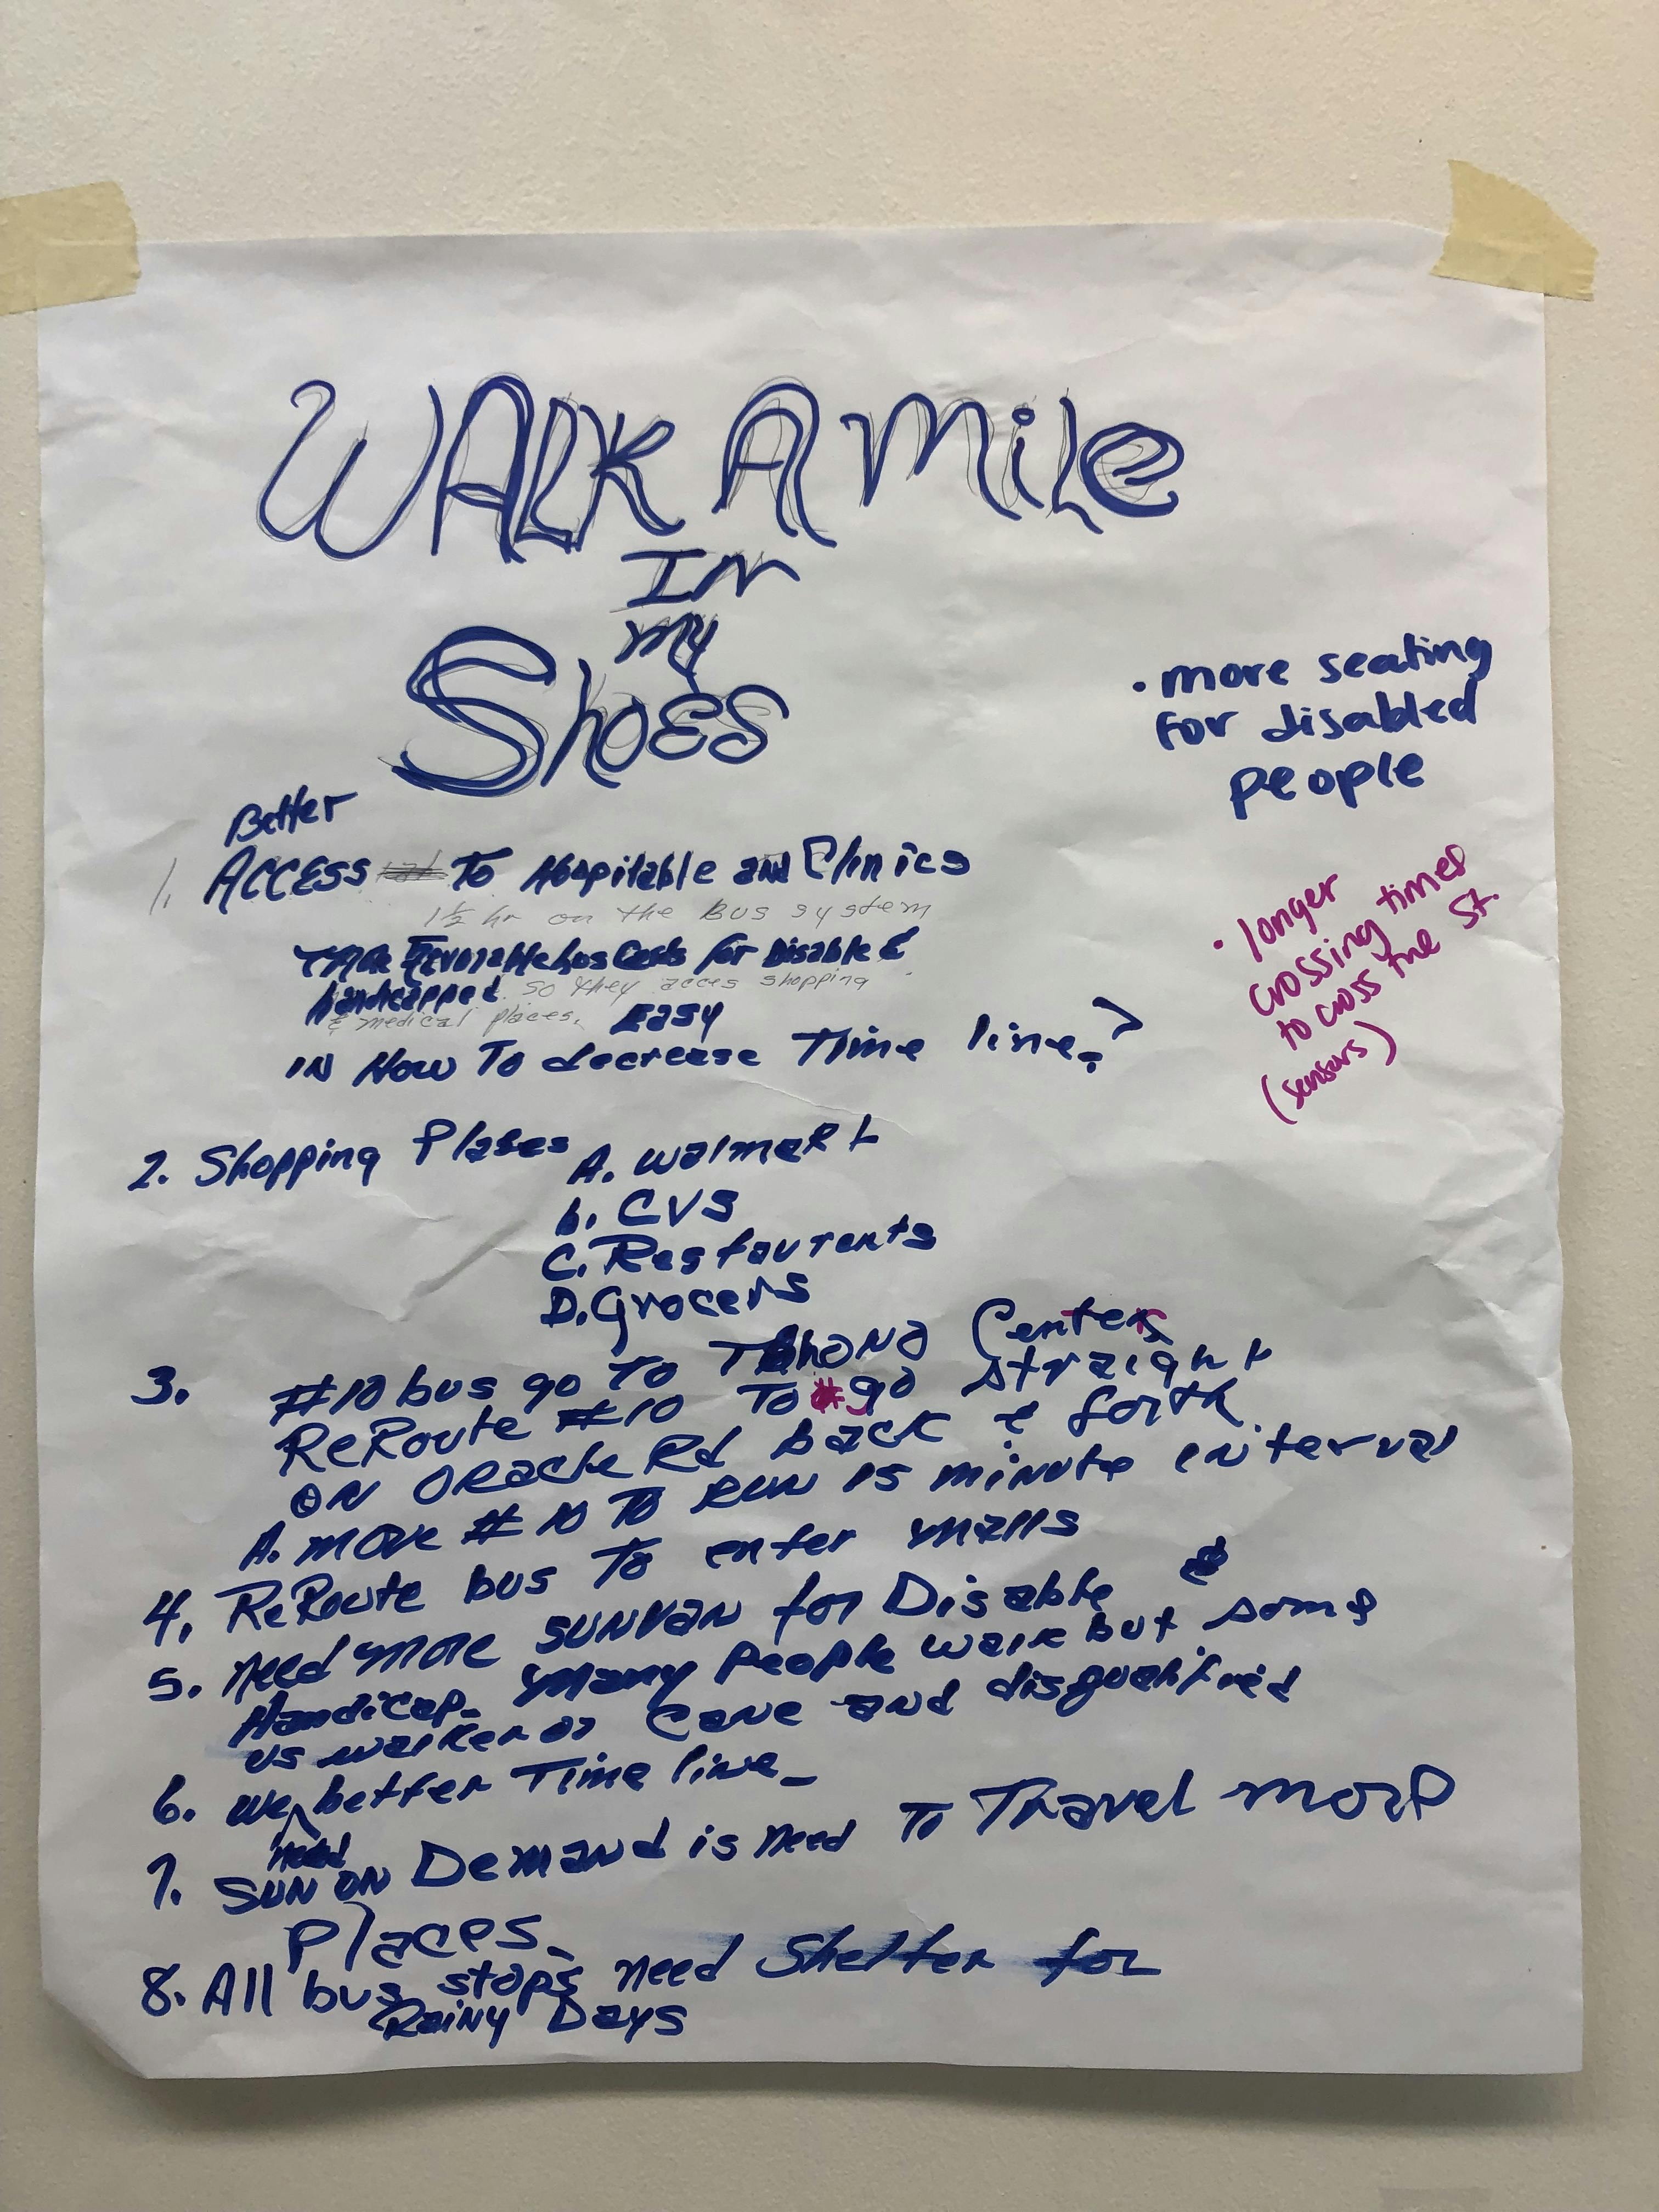 WALK A Mile
IN
my
ShoES
Better
1. ACCESS To Hospitable and Clinics
1½ hr on the Bus system
more Favorable bus Costs for Disable &
handicapped so they acces shopping
& medical places. Easy
IN How To decrease Time line?
2. Shopping Plases A. walmart
b. CVS
C. Restaurents
D. Grocers
3. #10 bus go To Tohono Center
ReRoute #10 To go straight
ON ORacle Rd back & forth
A. move #10 To RUN 15 minute interval
4. ReRoute bus To enter malls
5. Need more SUNVAN for Disable &
Handicap. many People walk but some
us walker or Cane and disqualified
6. We need better Time line
7. SUN ON Demand is need To Travel more
Places.
8. All bus stops need Shelter for
Rainy Days
• more seating
for disabled
people
• longer
crossing times
to cross the St.
(sensors)